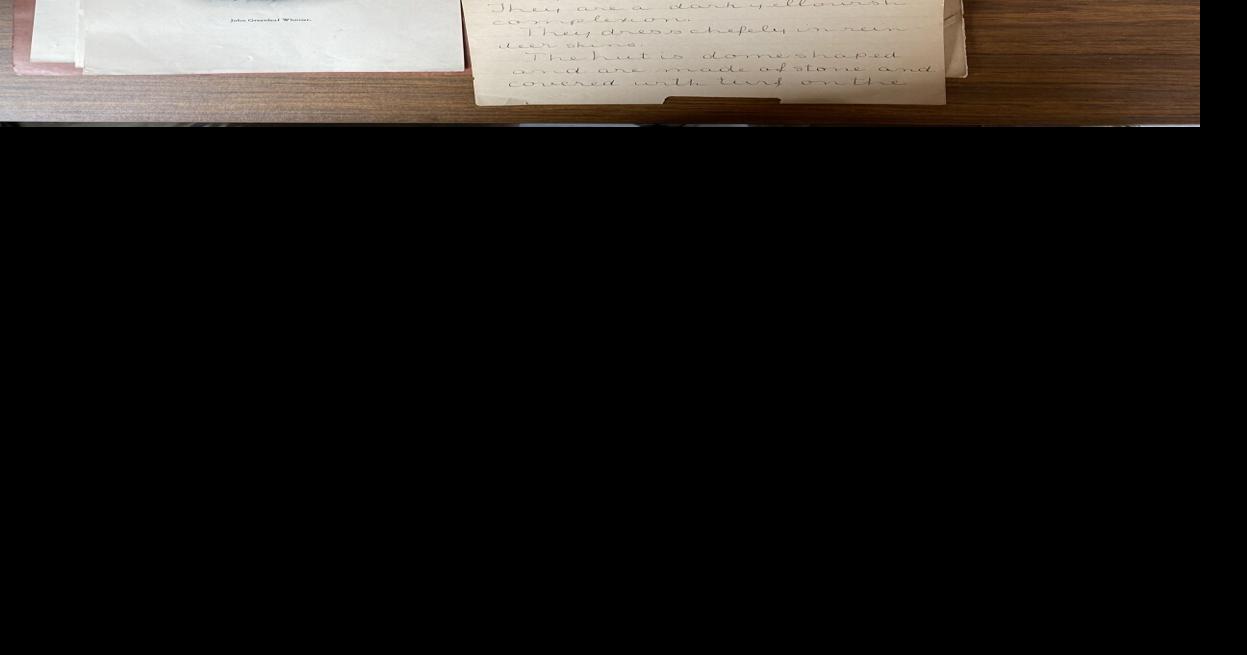 John Greenleaf Whittier.
They are a dark yellowish
complexion.
They dress chefely in rein
deer skins.
The hut is dome shaped
and are made of stone and
covered with turf on the